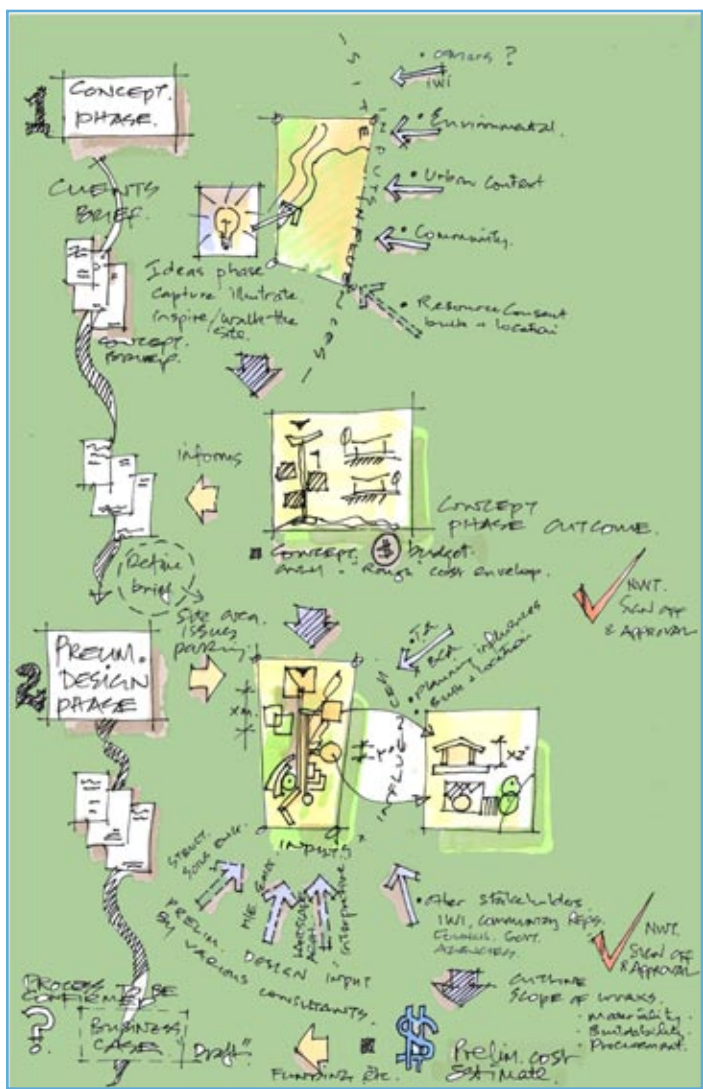 1
CONCEPT.
PHASE.
CLIENTS
BRIEF.
Ideas phase
Capture illustrate.
inspire/walk the
site.
CONCEPT.
SITE INPUTS
INFLUENCES
• owners?
IWI
• Environmental.
• Urban Context
• Community.
• Resource Consent
bulk + location
informs
CONCEPT
PHASE OUTCOME.
CONCEPT. $ budget.
Rough cost envelop.
Refine
brief
NWT.
SIGN OFF
& APPROVAL
2
PRELIM.
DESIGN
PHASE
Site area.
issues
parking.
XM
• T.A
• BCA
• Planning influences
• Bulk + location
INFLUENCES
XZ
INPUTS
STRUCT.
M/E ENG.
LANDSCAPE
ARCH.
Interpretive
PRELIM. DESIGN INPUT
BY VARIOUS CONSULTANTS.
• other stakeholders
IWI, COMMUNITY REPS.
COUNCIL. GOVT.
AGENCIES.
NWT.
SIGN OFF
& APPROVAL
OUTLINE
SCOPE OF WORKS.
• Materiality.
• Buildability.
• Procurement.
PROCESS TO BE
CONFIRMED
?
BUSINESS
CASE
"Draft"
FUNDING ETC.
$ Prelim. cost
Estimate.